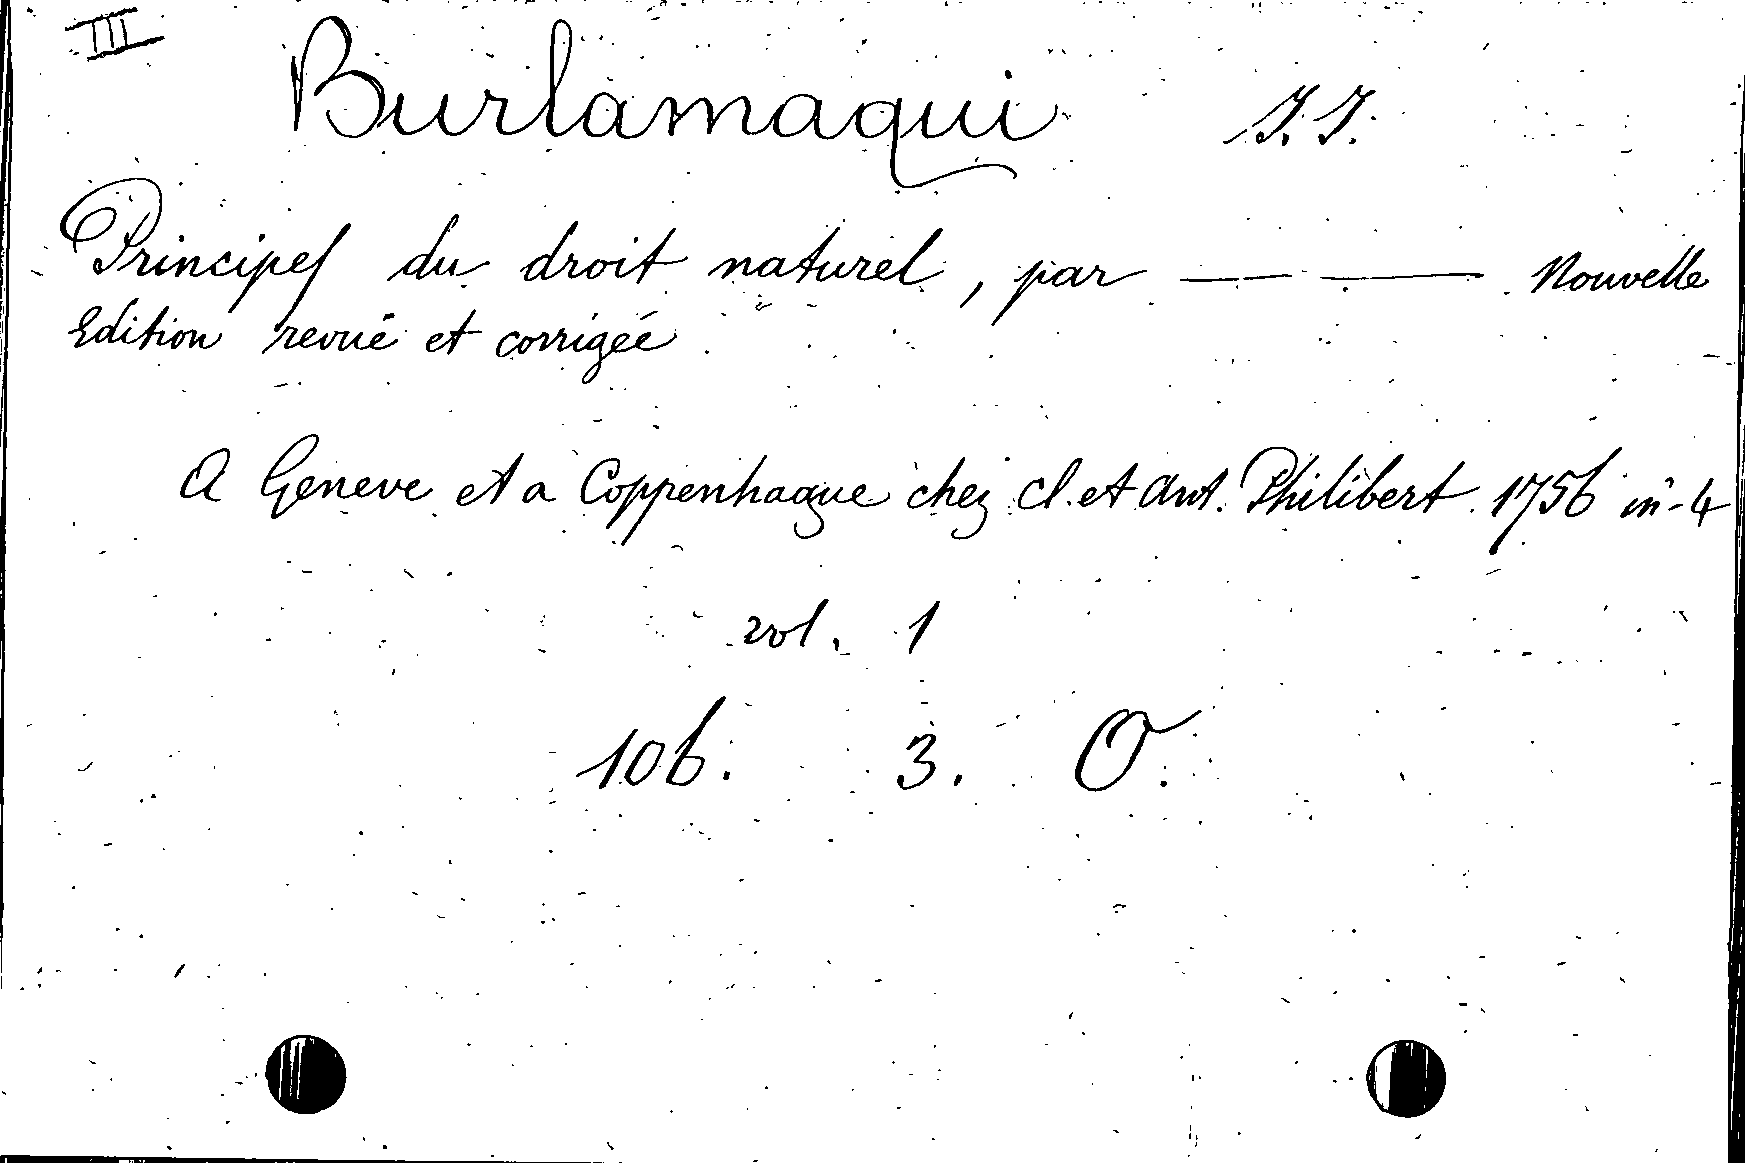 III
Burlamaqui J. J.
Principes du droit naturel, par — — Nouvelle
Edition revuë et corrigée
A Geneve et a Coppenhague chez Cl. et Ant. Philibert. 1756 in-4
vol. 1
106. 3. O.